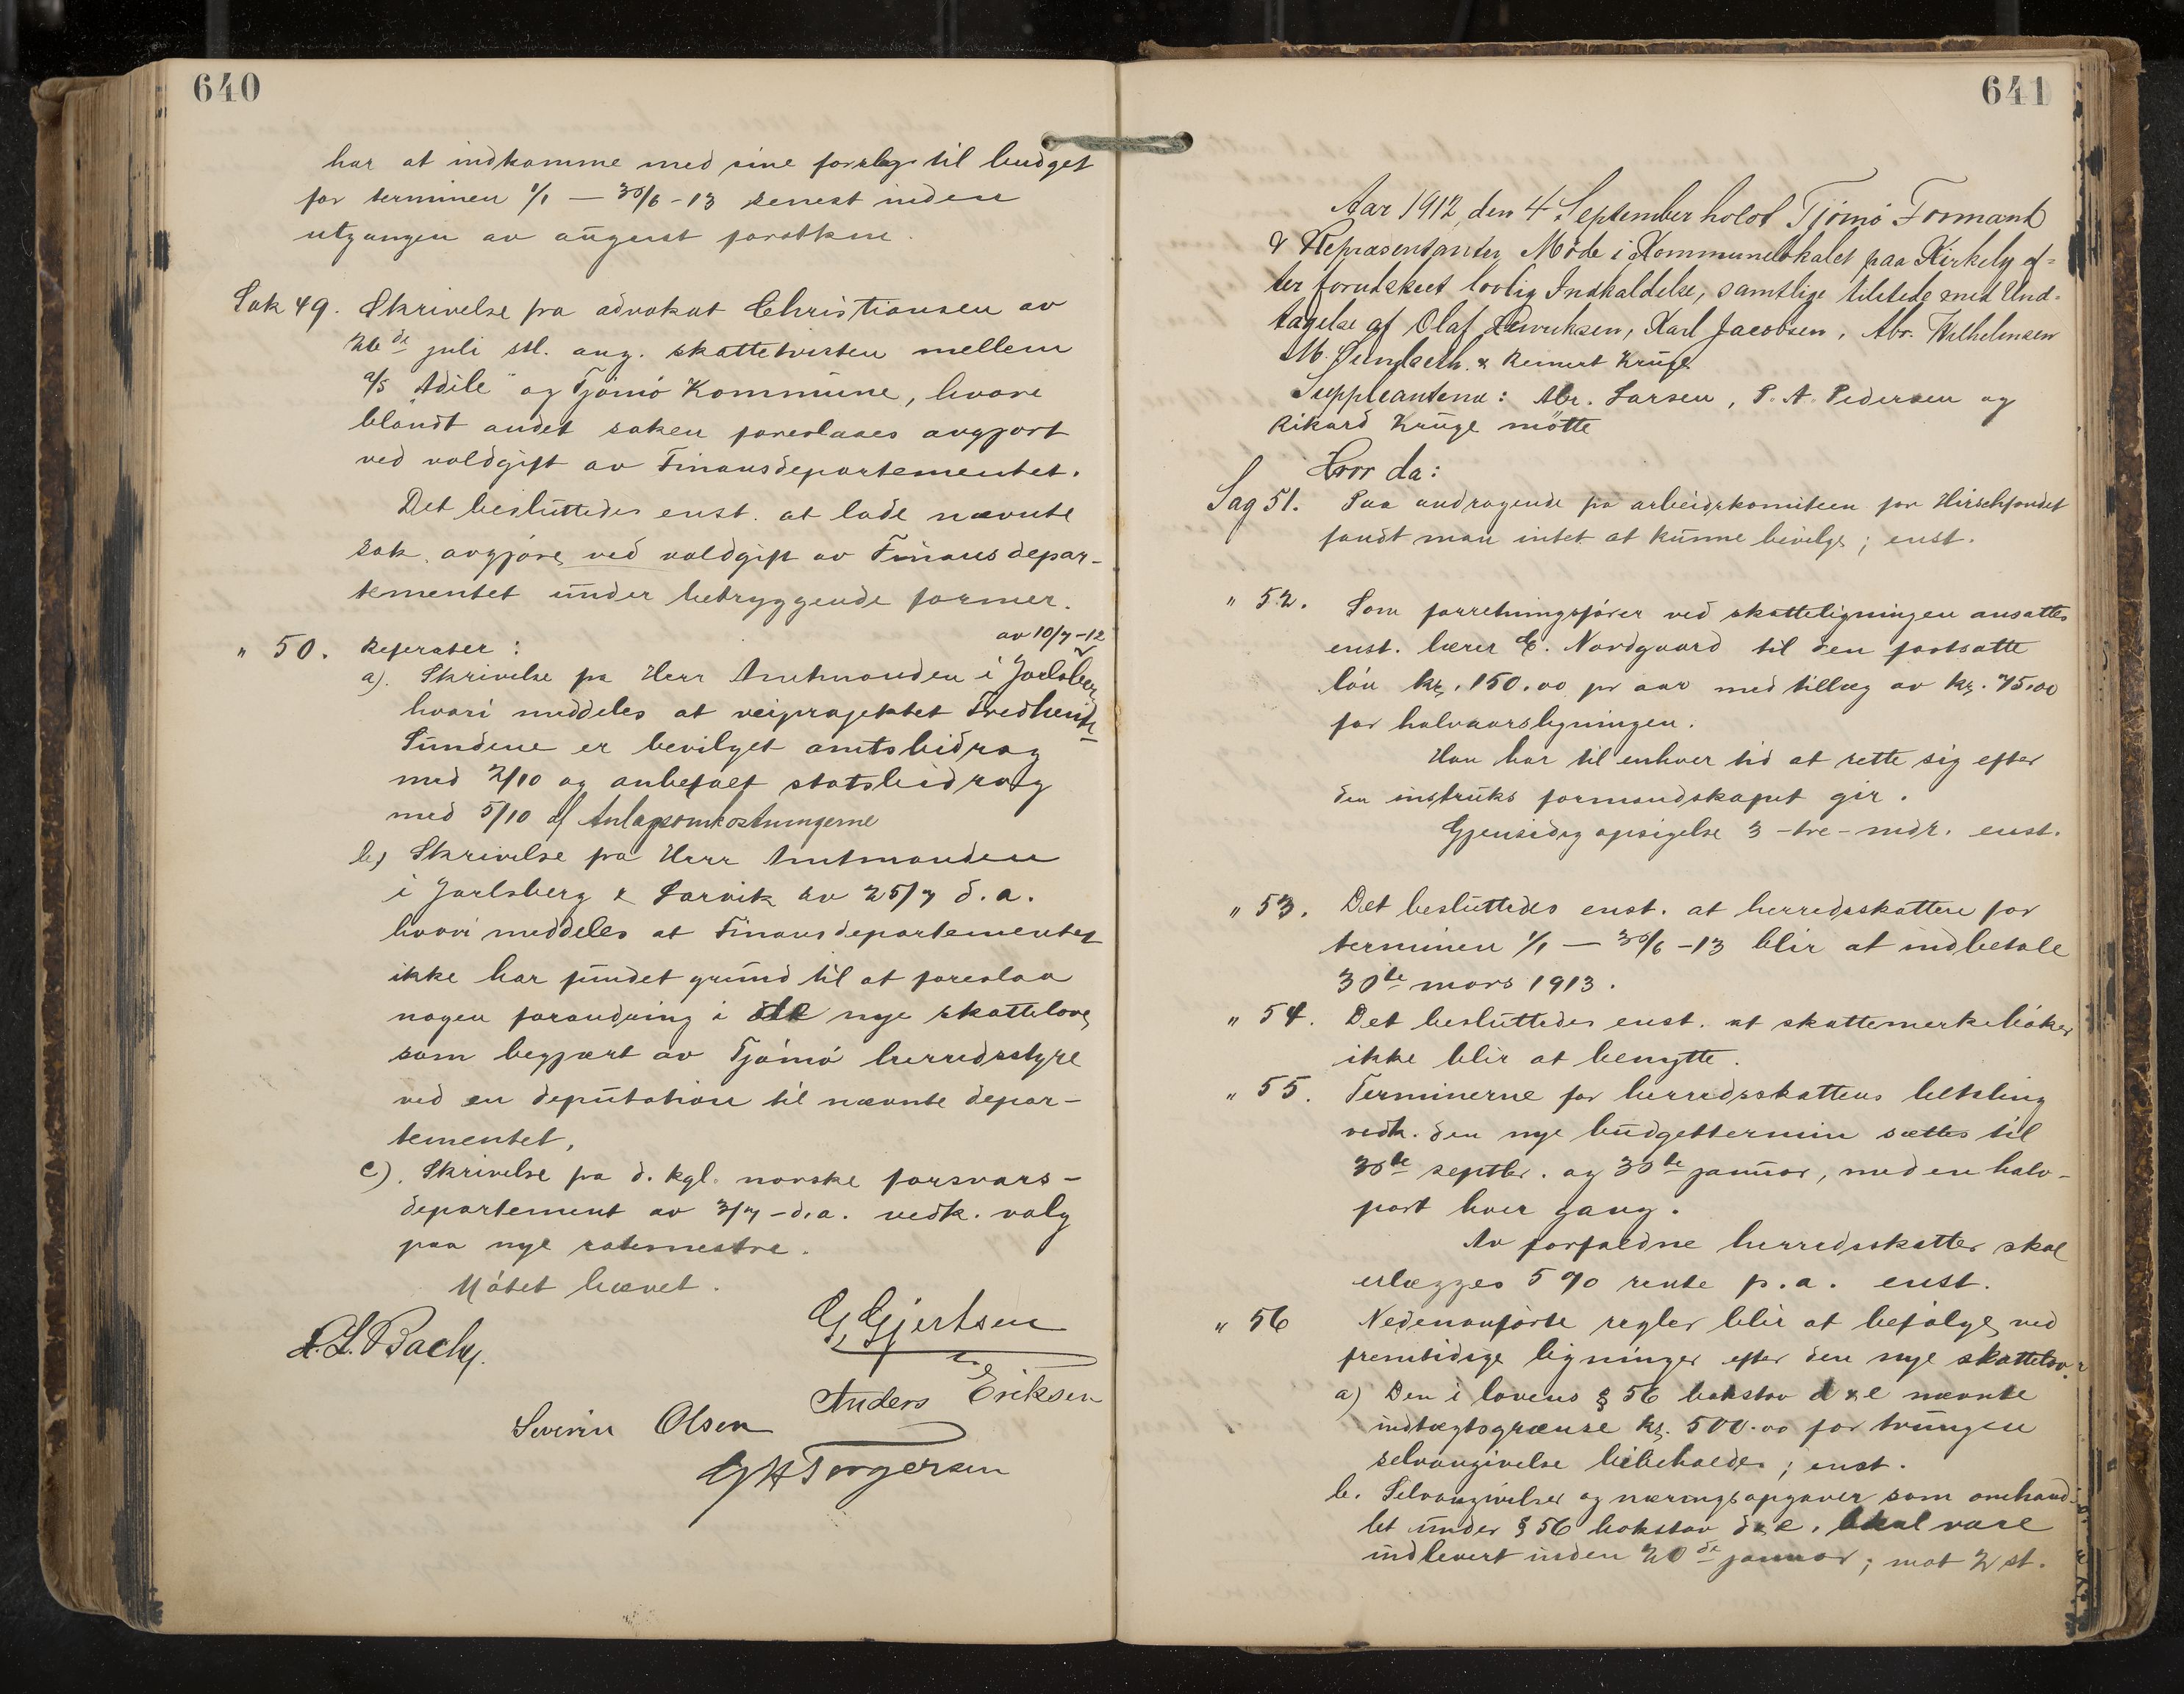 640
har at indkomme med sine forslag til budget
for terminen 1/1 — 30/6-13 senest inden
utgangen av august førstkm.
Sak 49. Skrivelse fra advokat Christiansen av
26de juli stl. ang. skattetvisten mellem
a/s "Adile" og Tjømø Kommune, hvori
blandt andet saken foreslaaes avgjort
ved voldgift av Finansdepartementet.
Det besluttedes enst. at lade nævnte
sak avgjøre ved voldgift av Finansdepar-
tementet under betryggende former.
" 50. Referater:
av 10/7-12
a). Skrivelse fra Herr Amtmanden i Jarlsberg
hvori meddeles at veiprojektet Fredheim-
Sundene er bevilget amtsbidrag
med 2/10 og anbefalt statsbidrag
med 5/10 af Anlægsomkostningerne
b) Skrivelse fra Herr Amtmanden
i Jarlsberg & Larvik av 25/7 d.a.
hvori meddeles at Finansdepartementet
ikke har fundet grund til at foreslaa
nogen forandring i de nye skattelove
som begjært av Tjømø herredsstyre
ved en deputation til nævnte depar-
tementet,
c). Skrivelse fra d. kgl. norske forsvars-
departement av 3/7 - d.a. vedk. valg
paa nye rodemestre.
Møtet hævet.
G. Gjertsen
A. L. Bache
Anders Eriksen
Severin Olsen
Torgersen
641
Aar 1912, den 4 September holdt Tjømø Formænd
& Repræsentanter Møde i Kommunelokalet paa Kirkely ef-
ter forudskeet lovlig Indkaldelse, samtlige tilstede med Und-
tagelse af Olaf Henriksen, Karl Jacobsen, Abr. Wilhelmsen
M. & Reinert Krüge
Suppleantene: Abr. Larsen, P. A. Pedersen og
Rikard Krüge møtte
Hvor da:
Sag 51. Paa andragende fra arbeidskomiteen for Hirschfondet
fandt man intet at kunne bevilge; enst.
" 52. Som forretningsfører ved skatteligningen ansattes
enst. lærer E. Nordgaard til den fastsatte
løn kr. 150.00 pr aar med tillæg av kr. 75.00
for halvaarsligningen.
Han har til enhver tid at rette sig efter
den instruks formandskapet gir.
Gjensidig opsigelse 3 - tre - mdr. enst.
" 53. Det besluttedes enst. at herredsskattene for
terminen 1/1 — 30/6 -13 blir at indbetale
30te mars 1913.
" 54. Det besluttedes enst. at skattemerkebøker
ikke blir at benytte.
" 55. Terminerne for herredsskattens betaling
vedk. den nye budgettermin sættes til
30te septbr. og 30te januar, med en halv-
part hver gang.
Av forfaldne herredsskatter skal
erlægges 5 % rente p.a. enst.
" 56 Nedenanførte regler blir at befølge ved
fremtidige ligninger efter den nye skattelov.
a) Den i lovens § 56 bokstav d & e nævnte
indtægtsgrænse kr. 500.00 for tvungen
selvangivelse bibeholdes; enst.
b. Selvangivelser og næringsopgaver som omhand-
let under § 56 bokstav d & e. skal være
indlevert inden 20de januar; mot 2 st.